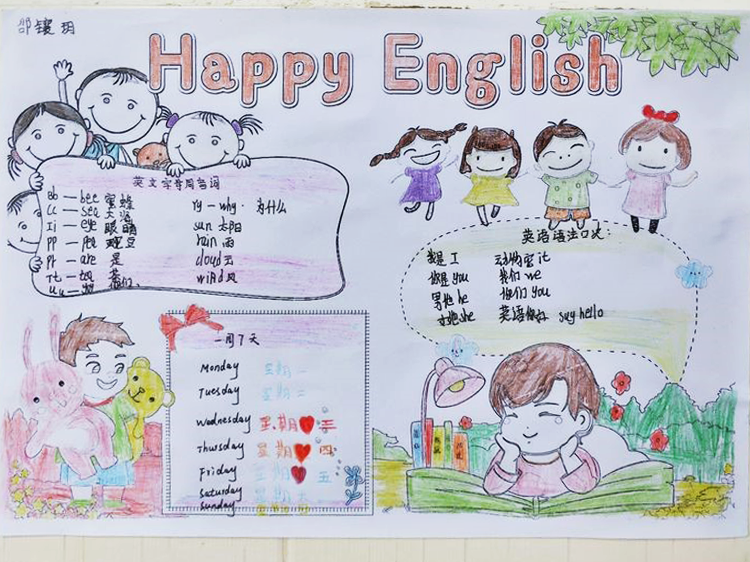 邵镶玥
Happy English
英文字母同音词
bb — bee 蜜蜂
cc — sea 大海
Ii — eye 眼睛
pp — pea 豌豆
rr — are 是
Tt — tea 茶
uu —
yy — why 为什么
sun 太阳
rain 雨
cloud 云
wind 风
英语语法口决:
我是 I 动物它 it
你是 you 我们 we
男他 he 你们 you
女她 she 英语你好 say hello
一周7天
Monday 星期一
Tuesday 星期二
Wednesday 星期三
Thursday 星期四
Friday 星期五
Saturday 星期六
Sunday